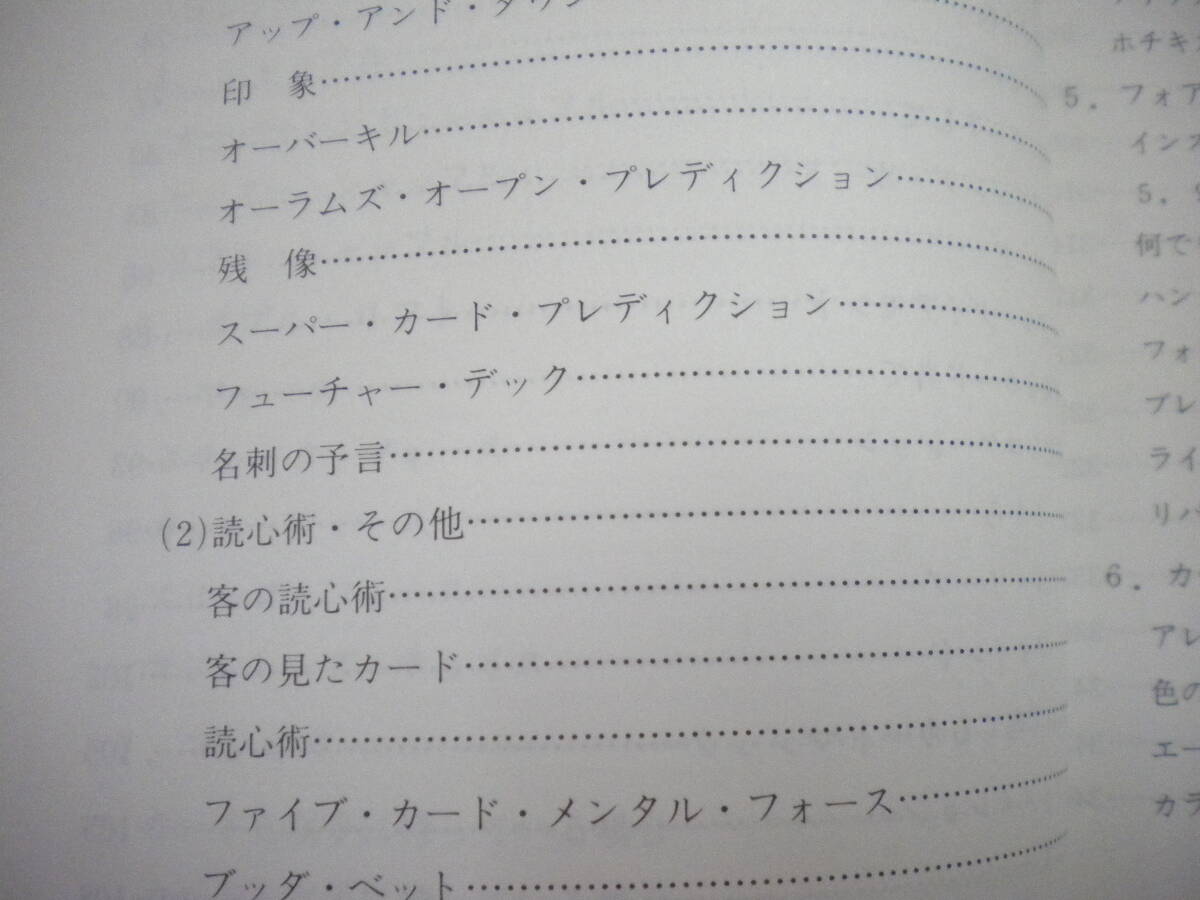 アップ・アンド・ダウン
印　象……………………
オーバーキル……………………
オーラムズ・オープン・プレディクション……………………
残　像……………………
スーパー・カード・プレディクション……………………
フューチャー・デック……………………
名刺の予言……………………
(2)読心術・その他……………………
客の読心術……………………
客の見たカード……………………
読心術……………………
ファイブ・カード・メンタル・フォース……………………
ブッダ・ベット……………………
ホチキ
5．フォア
イン
5．
何で
ハン
フォ
プレ
ライ
リバ
6．カ
アレ
色の
エー
カラ